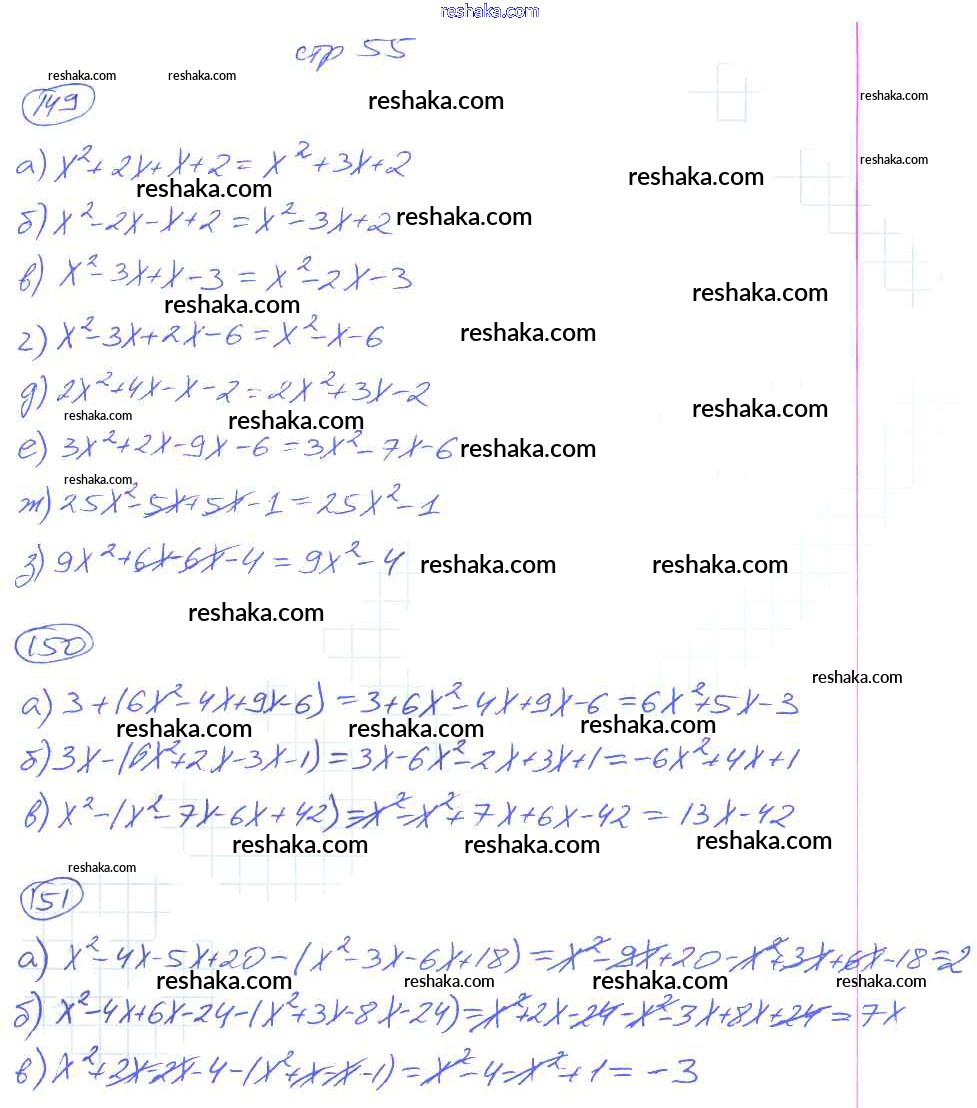 reshaka.com
стр 55
reshaka.com reshaka.com
149
reshaka.com
reshaka.com
а) x²+2x+x+2 = x²+3x+2
reshaka.com
reshaka.com
reshaka.com
б) x²-2x-x+2 = x²-3x+2
reshaka.com
в) x²-3x+x-3 = x²-2x-3
reshaka.com
reshaka.com
г) x²-3x+2x-6 = x²-x-6
reshaka.com
д) 2x²+4x-x-2 = 2x²+3x-2
reshaka.com
reshaka.com
reshaka.com
е) 3x²+2x-9x-6 = 3x²-7x-6
reshaka.com
reshaka.com
ж) 25x²-5x+5x-1 = 25x²-1
з) 9x²+6x-6x-4 = 9x²-4
reshaka.com
reshaka.com
reshaka.com
150
reshaka.com
а) 3+(6x²-4x+9x-6) = 3+6x²-4x+9x-6 = 6x²+5x-3
reshaka.com reshaka.com reshaka.com
б) 3x-(6x²+2x-3x-1) = 3x-6x²-2x+3x+1 = -6x²+4x+1
в) x²-(x²-7x-6x+42) = x²-x²+7x+6x-42 = 13x-42
reshaka.com reshaka.com reshaka.com
reshaka.com
151
а) x²-4x-5x+20-(x²-3x-6x+18) = x²-9x+20-x²+3x+6x-18 = 2
reshaka.com reshaka.com reshaka.com reshaka.com
б) x²-4x+6x-24-(x²+3x-8x-24) = x²+2x-24-x²-3x+8x+24 = 7x
в) x²+2x-2x-4-(x²+x-x-1) = x²-4-x²+1 = -3